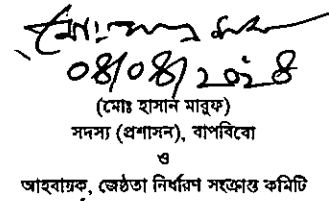 ০৪/০৪/২০২৪
(মোঃ হাসান মারুফ)
সদস্য (প্রশাসন), বাপবিবো
ও
আহবায়ক, জেষ্ঠতা নির্ধারণ সংক্রান্ত কমিটি